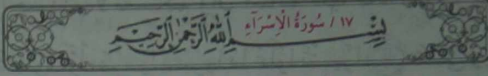 ١٧ / سُورَةُ الْإِسْرَاءِ
بِسْمِ اللَّهِ الرَّحْمَٰنِ الرَّحِيمِ